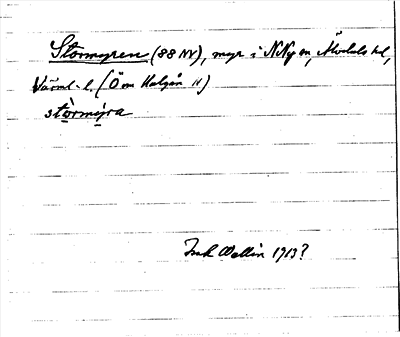 Stormyren (88 NV), myr i N Ny sn, Älvdals hd,
Värml. l. (Ö om Halgån H)
stòrmýra
Wallin 1913?